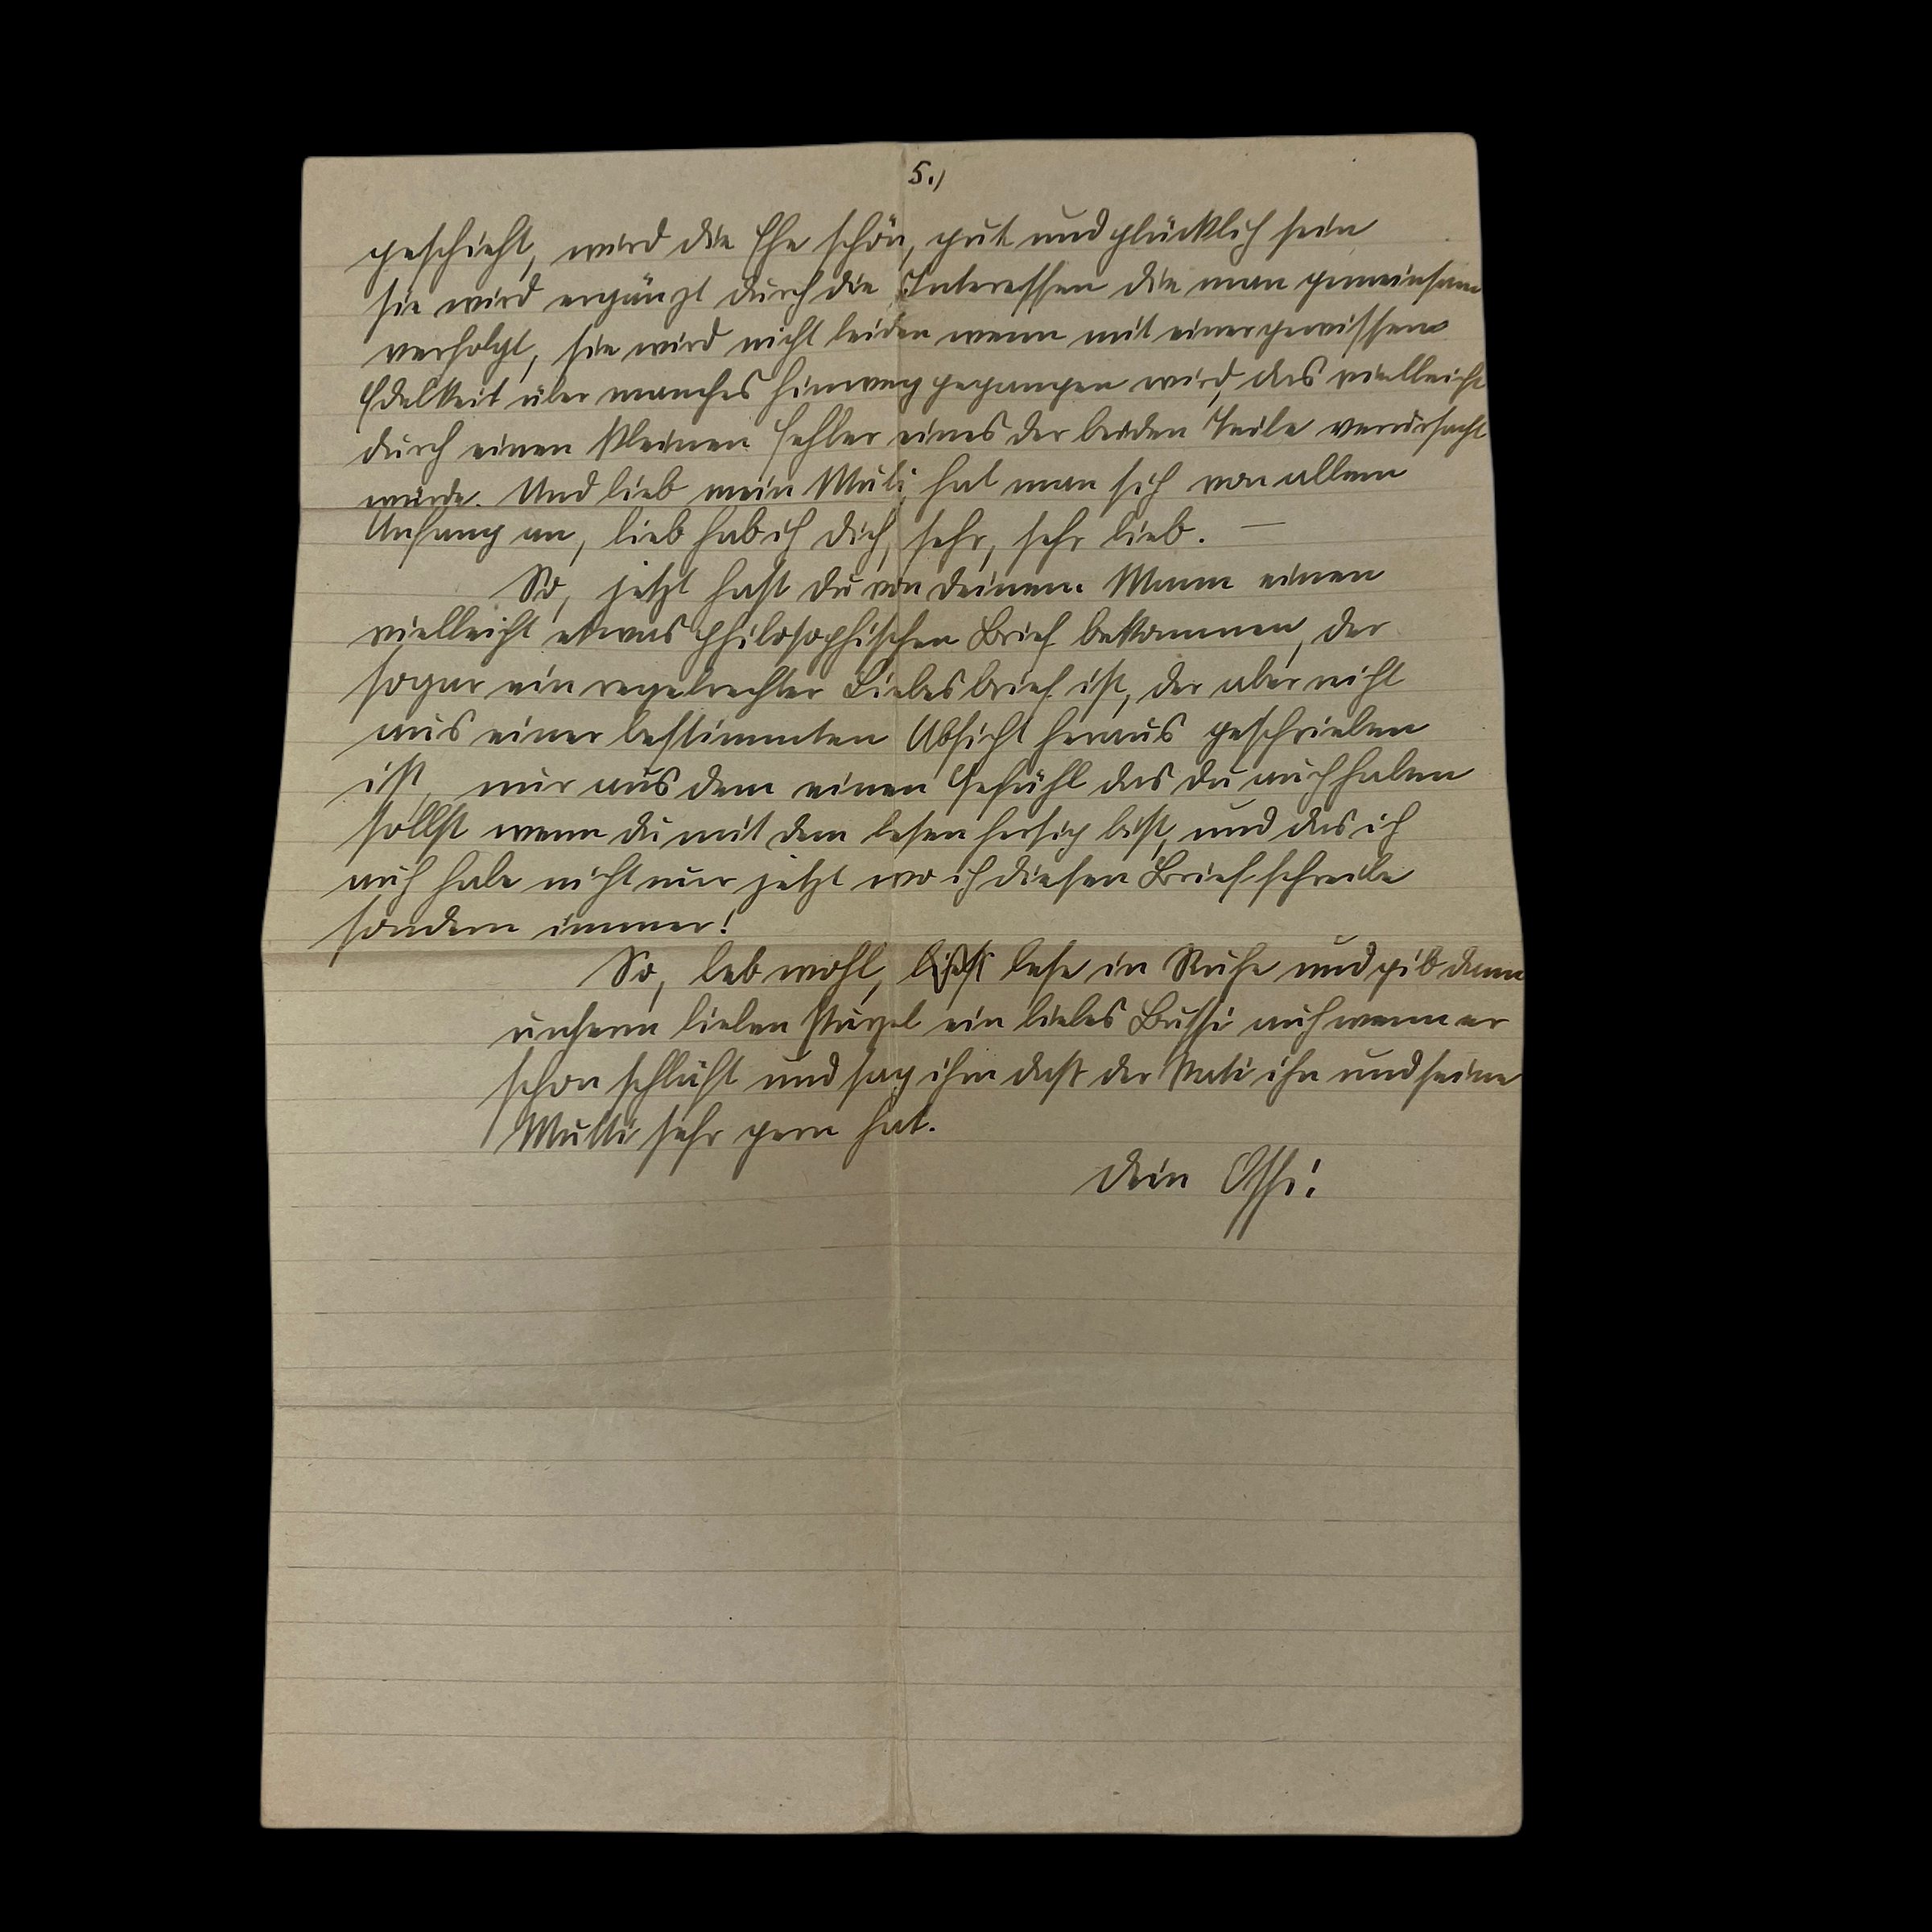 5.)
geschieht, wird die Ehe schön, gut und glücklich sein
sie wird ergänzt durch die Interessen die man gemeinsam
verfolgt, sie wird nicht leiden wenn mit einer gewissen
Edelkeit über manches hinweg gegangen wird, das vielleicht
durch einen kleinen Fehler eines der beiden Teile verursacht
wurde. Und lieb mein Muli, hat man sich von allem
Anfang an, lieb hab ich dich, sehr, sehr lieb. —
So, jetzt hast du von deinem Mann einen
vielleicht etwas philosophischen Brief bekommen, der
sogar ein regelrechter Liebesbrief ist, der aber nicht
aus einer bestimmten Absicht heraus geschrieben
ist, nur aus dem einen Gefühl das du auch haben
sollst wenn du mit dem lesen fertig bist, und das ich
auch habe nicht nur jetzt wo ich diesen Brief schreibe
sondern immer!
So, leb wohl, lese in Ruhe und gib dann
unserm lieben Purzel ein liebes Bussi auch wenn er
schon schläft und sag ihm dass der Vati ihn und seine
Mutti sehr gern hat.
Dein Ossi!